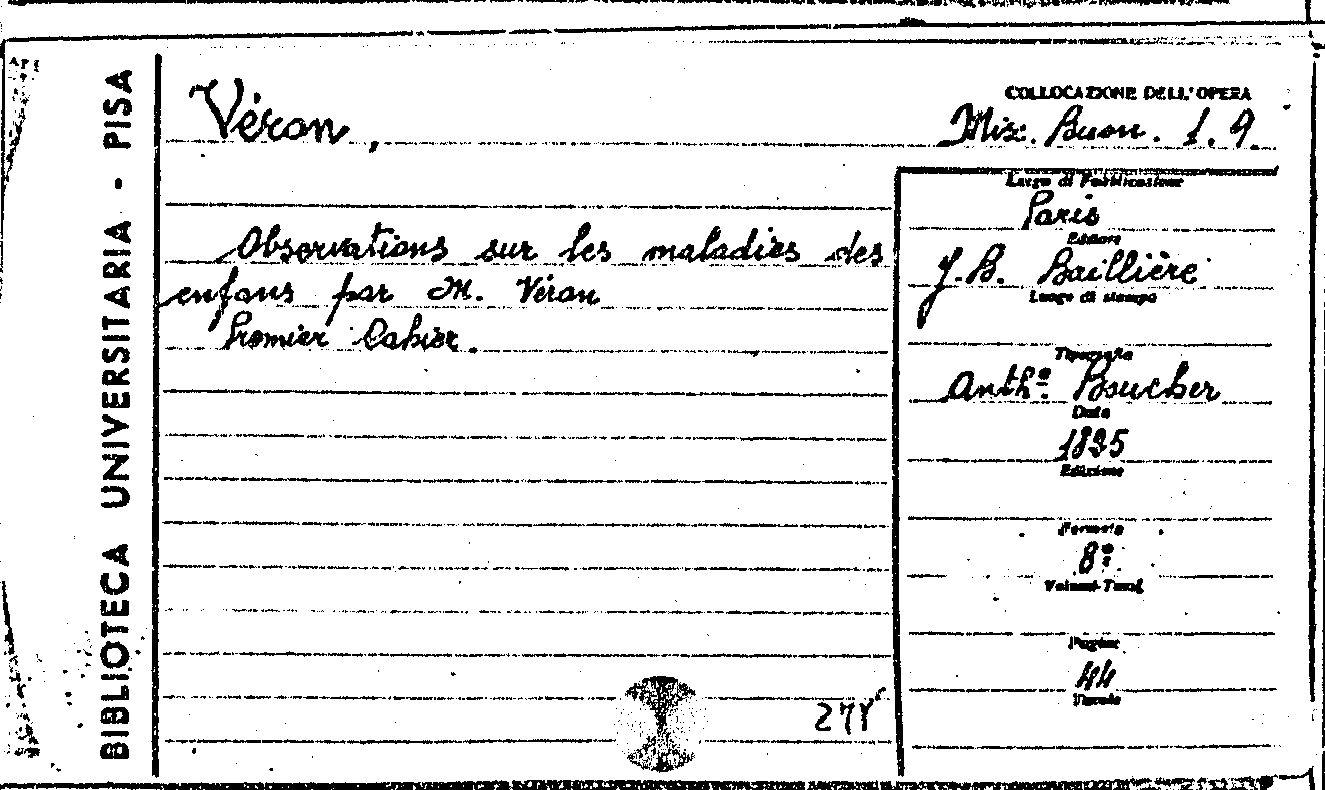 BIBLIOTECA UNIVERSITARIA - PISA
Véron,
COLLOCAZIONE DELL'OPERA
Misc. Buon. 1. 9.
Observations sur les maladies des
enfans par M. Véron
Premier Cahier.
Luogo di Pubblicazione
Paris
Editore
J.B. Baillière
Luogo di stampa
Tipografia
Anth.e Boucher
Data
1825
Edizione
Formato
8°
Volumi-Tomi
Pagine
44
Tavole